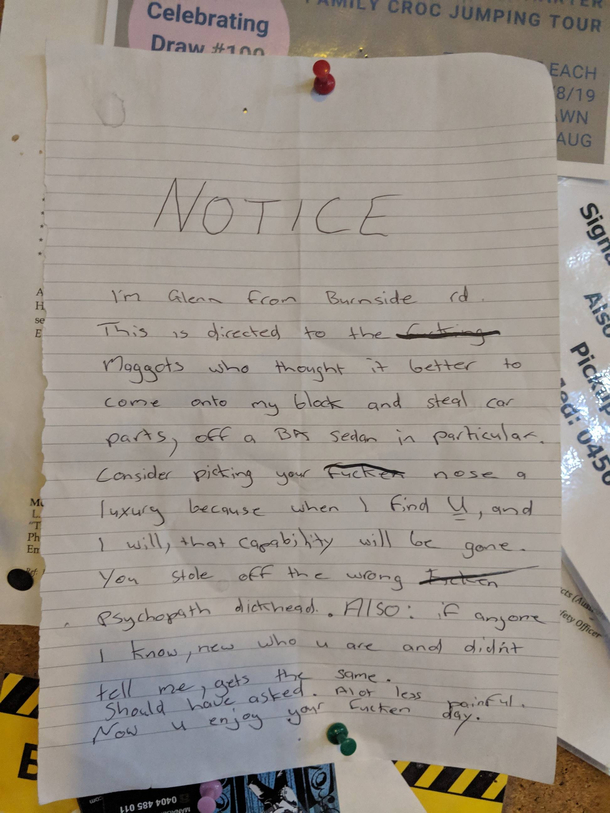 Celebrating
Draw #100
FAMILY CROC JUMPING TOUR
EACH
8/19
AWN
AUG
NOTICE
I'm Glenn from Burnside rd.
This is directed to the fucking
Maggots who thought it better to
come onto my block and steal car
parts, off a BA sedan in particular.
Consider picking your fucken nose a
luxury because when I find U, and
I will, that capability will be gone.
You stole off the wrong fucken
Psychopath dickhead. ALSO: if anyone
I know, new who u are and didn't
tell me, gets the same.
Should have asked. Alot less painful.
Now u enjoy your fucken day.
Also
0404 485 011